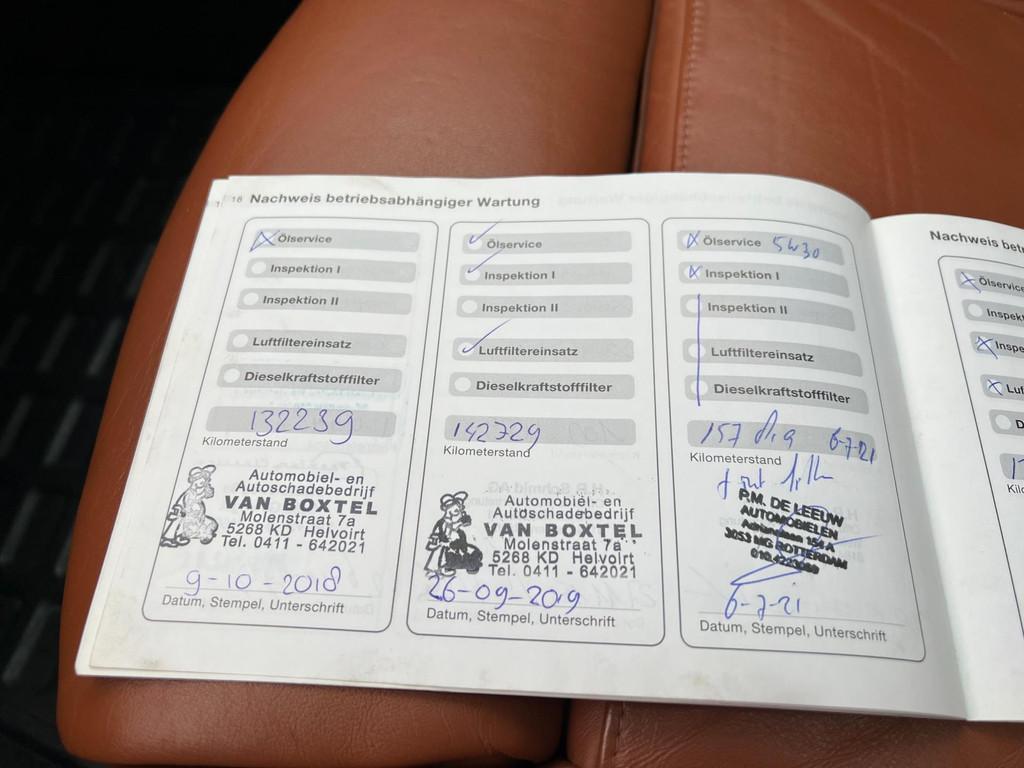 16 Nachweis betriebsabhängiger Wartung
Ölservice
Inspektion I
Inspektion II
Luftfiltereinsatz
Dieselkraftstofffilter
132239
Kilometerstand
Automobiel- en
Autoschadebedrijf
VAN BOXTEL
Molenstraat 7a
5268 KD Helvoirt
Tel. 0411 - 642021
9-10-2018
Datum, Stempel, Unterschrift
Ölservice
Inspektion I
Inspektion II
Luftfiltereinsatz
Dieselkraftstofffilter
142729
Kilometerstand
Automobiel- en
Autoschadebedrijf
VAN BOXTEL
Molenstraat 7a
5268 KD Helvoirt
Tel. 0411 - 642021
26-09-2019
Datum, Stempel, Unterschrift
Ölservice 5W30
Inspektion I
Inspektion II
Luftfiltereinsatz
Dieselkraftstofffilter
157 6-7-21
Kilometerstand
P.M. DE LEEUW
AUTOMOBIELEN
154 A
3053 MG ROTTERDAM
6-7-21
Datum, Stempel, Unterschrift
Nachweis bet
Ölservice
Inspek
Inspe
Luf
D
Kilo